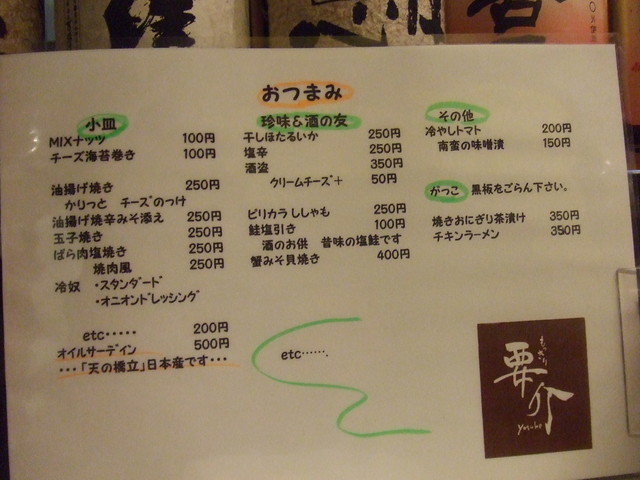 おつまみ
小皿
MIXナッツ 100円
チーズ海苔巻き 100円
油揚げ焼き 250円
かりっと チーズのっけ
油揚げ焼辛みそ添え 250円
玉子焼き 250円
ばら肉塩焼き 250円
焼肉風 250円
冷奴 ・スタンダード
・オニオンドレッシング
etc‥‥‥ 200円
オイルサーディン 500円
・・・「天の橋立」日本産です・・・
珍味&酒の友
干しほたるいか 250円
塩辛 250円
酒盗 350円
クリームチーズ+ 50円
ピリカラ ししゃも 250円
鮭塩引き 100円
酒のお供 昔味の塩鮭です
蟹みそ貝焼き 400円
etc…….
その他
冷やしトマト 200円
南蛮の味噌漬 150円
がっこ 黒板をごらん下さい。
焼きおにぎり茶漬け 350円
チキンラーメン 350円
もっきり
要介